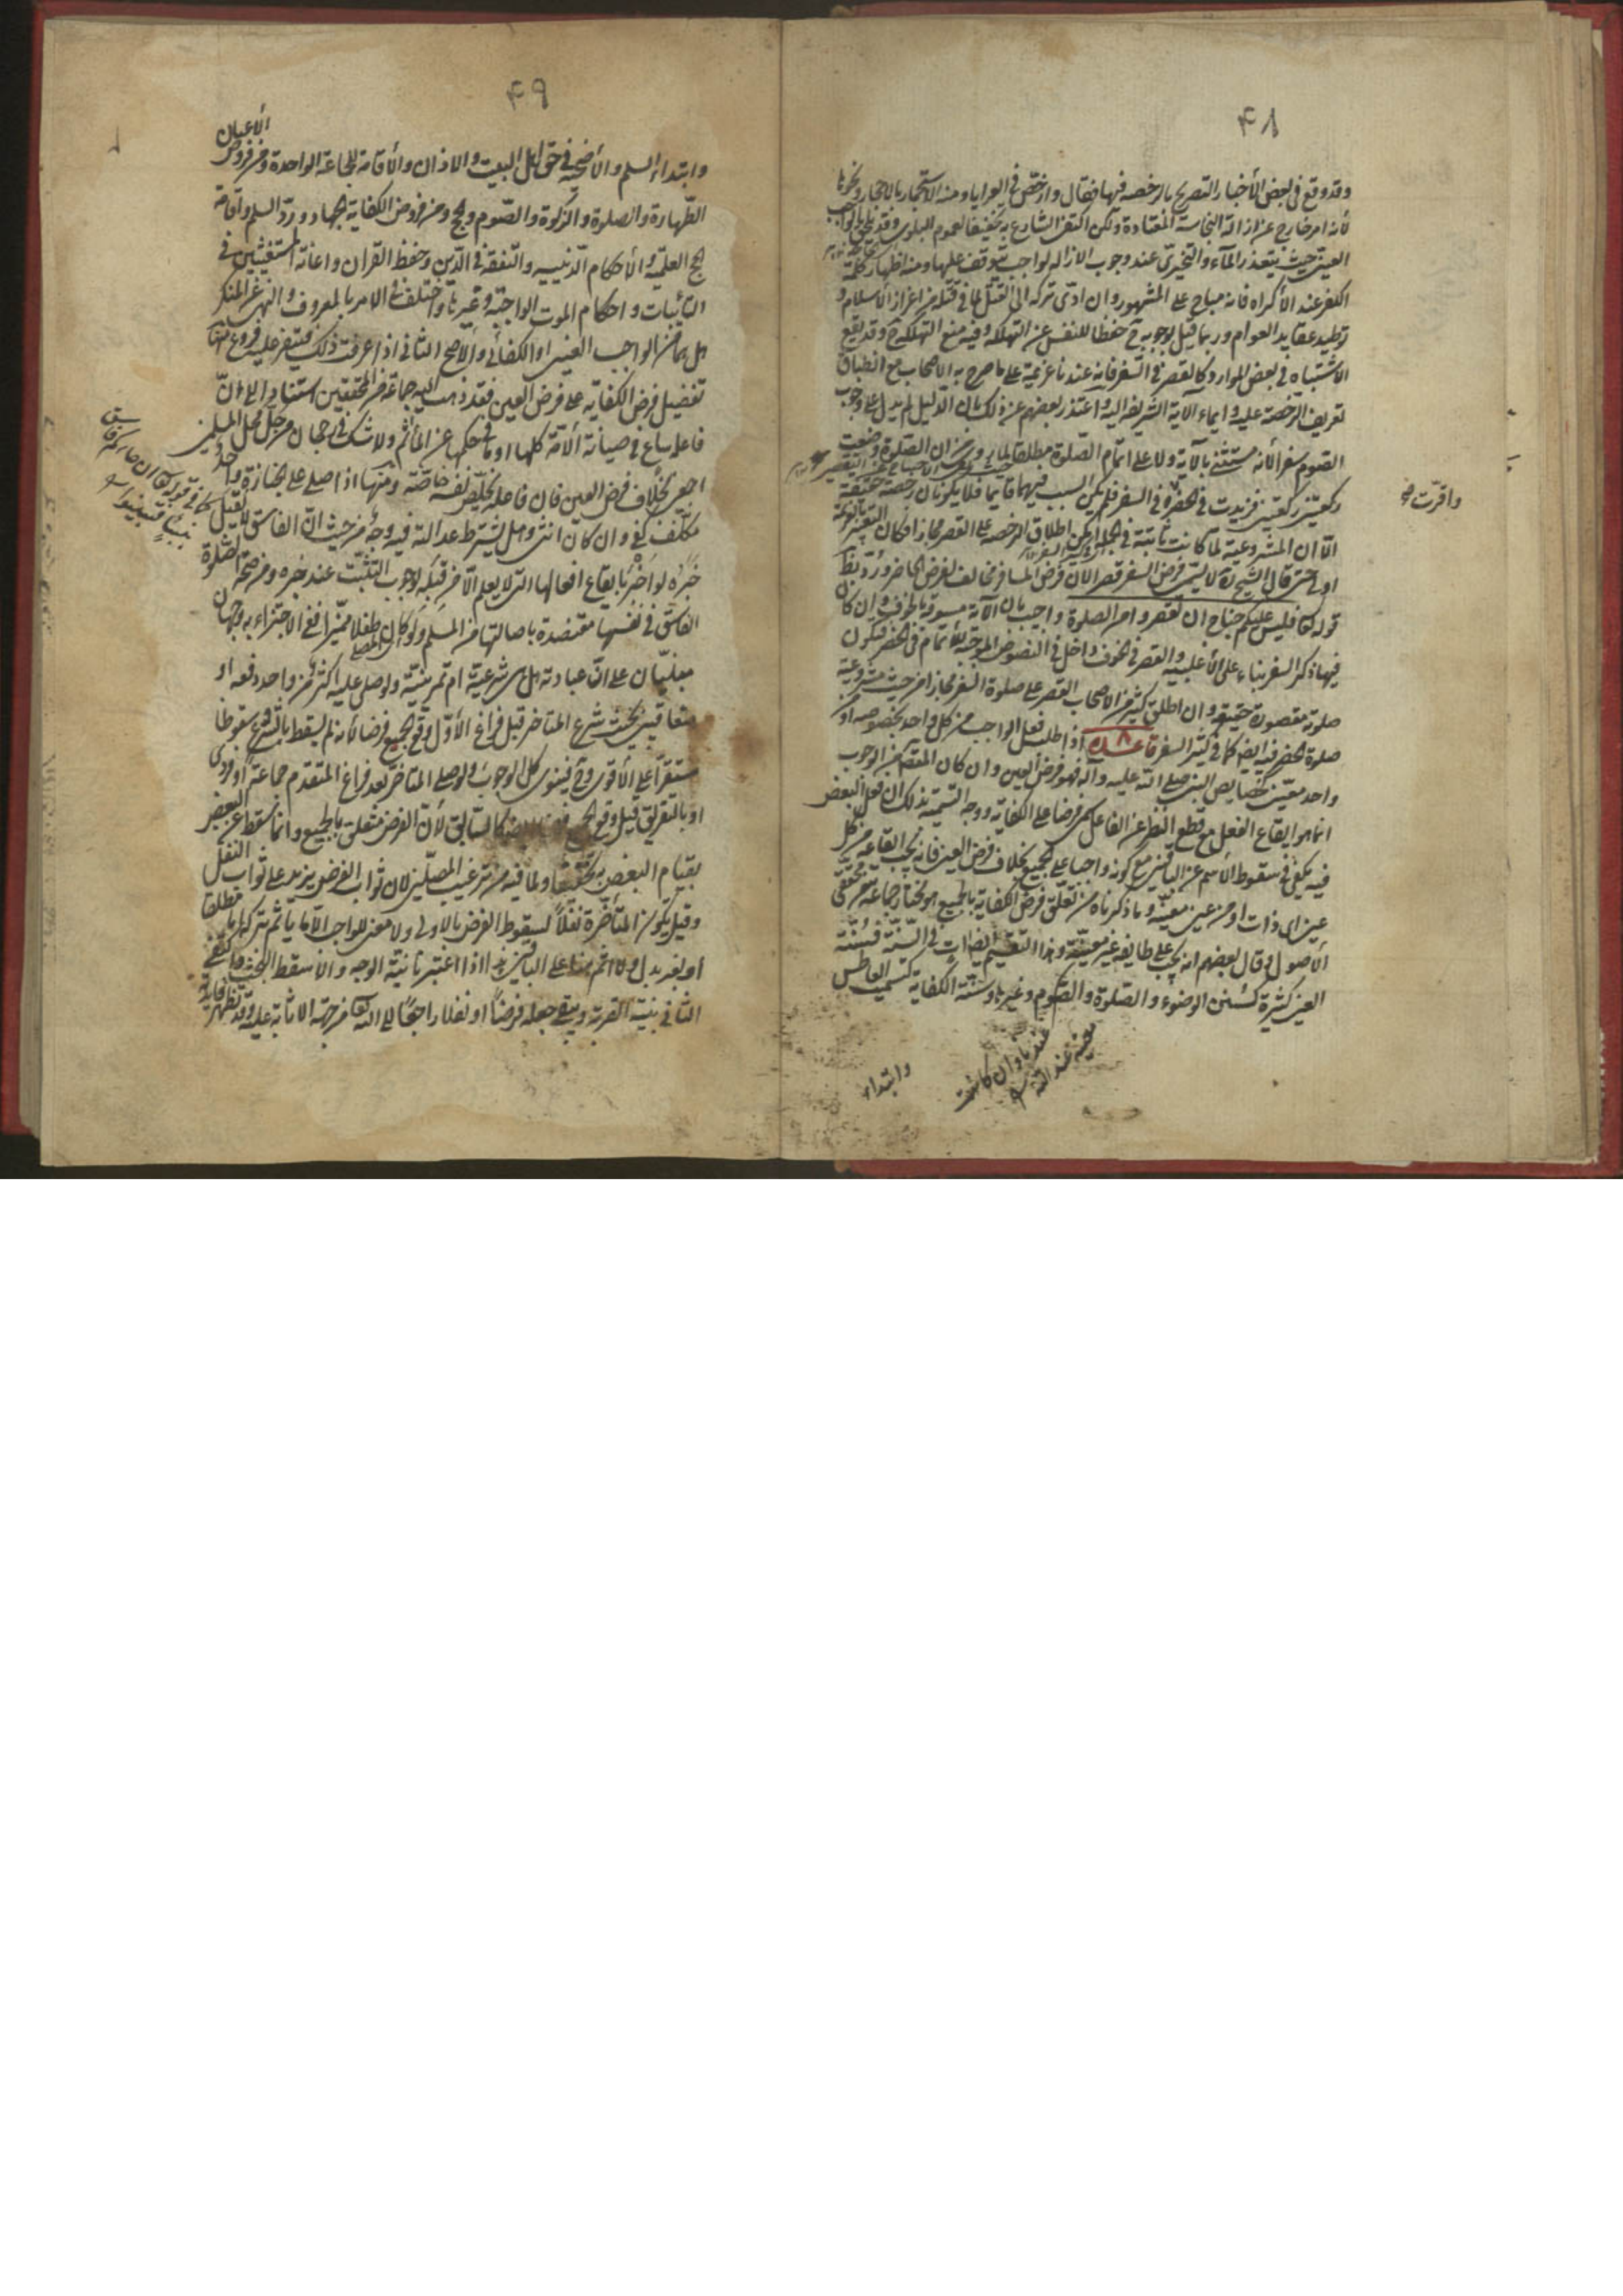 ۴۸
وقد وقع فى بعض الأخبار التصريح بالرخصه فيها فقال وارخص فى العرايا ومنه الاستجمار بالاحجار ونحوها
لأنه امر خارج عن ازالة النجاسة المعتادة ولكن اكتفى الشارع به تخفيفا لعموم البلوى وقد يلحق بالواجب
العينى حيث يتعذر المآء والتحرى عند وجوب الازاله لواجب يتوقف عليها ومنه اظهار كلمة
الكفر عند الأكراه فانه مباح على المشهور وان ادى تركه الى القتل لما فى قتله من اعزاز الأسلام و
توطيد عقايد العوام وربما قيل بوجوبه ح حفظا للنفس عن التهلكه وفيه منع التهلكة ح وقد يقع
الاشتباه فى بعض الموارد كالقصر فى السفر فانه عندنا عزيمة على ما صرح به الاصحاب مع انطباق
تعريف الرخصة عليه وايماء الآية الشريفه اليه واعتذر بعضهم عن ذلك بان الدليل لم يدل على وجوب
الصوم سفرا لأنه مستثنى بالآية ولا على اتمام الصلوة مطلقا لما روى من ان الصلوة وضعت
ركعتين ركعتين فزيدت فى الحضر وفى السفر فلم يكن السبب فيهما قايما فلا يكونان رخصة حقيقة
الا ان المشروعية لما كانت ثابتة فى الجملة امكن اطلاق الرخصه على القصر مجازا فكان التعبير بالعزيمة
اولى حتى قال الشيخ ره لا يسمى فرض السفر قصرا لان فرض المسافر مخالف لفرض الحاضر ورد بظ
قوله تعا فليس عليكم جناح ان تقصروا من الصلوة واجيب بان الآية مسوقة بالخوف وان كان
فيها ذكر السفر بناء على الأغلبيه والقصر فى الخوف داخل فى النصوص الموجبة للأتمام فى الحضر فيكون
صلوته مقصورة حقيقة وان اطلق كثير من الاصحاب القصر على صلوة السفر مجازا من حيث مشروعية
صلوة الحضر فيه ايضا كما فى كثير السفر قاعدة ٨ اذا طلب فعل الواجب من كل واحد بخصوصه او من
واحد معين كخصايص النبى صلى الله عليه وآله فهو فرض العين وان كان المقصد من الوجوب
انما هو ايقاع الفعل مع قطع النظر عن الفاعل سمى فرضا على الكفاية ووجه التسمية بذلك ان فعل البعض
فيه يكفى فى سقوط الأثم عن الباقين مع كونه واجبا على الجميع بخلاف فرض العين فانه يجب ايقاعه من كل
عين اى ذات او من عين معينة وما ذكرناه من تعلق فرض الكفاية بالجميع هو المختار جماعة من محققى
الأصول وقال بعضهم انه يجب على طايفه غير معينة وهذا التقسيم ايضا آت فى السنة فسنة
العين كثيرة كسنن الوضوء والصلوة والصوم وغيرها وسنة الكفاية كتسميت العاطس
عندنا وان كانت
معينة عند الله
وابتداء
واقرت صح
۴۹
وابتداء السلم والأضحيه فى حق اهل البيت والاذان والأقامة للجماعة الواحدة ومن فروض الأعيان
الطهارة والصلوة والزكوة والصوم والحج ومن فروض الكفاية الجهاد ورد السلم واقامة
الحج العلمية والأحكام الدينيه والتفقه فى الدين وحفظ القران واعانة المستغيثين فى
النائبات واحكام الموت الواجبة وغيرها واختلف فى الامر بالمعروف والنهى عن المنكر
هل هما من الواجب العينى او الكفائى والاصح الثانى اذا عرفت ذلك فيتفرع عليه فروع منها
تفضيل فرض الكفايه على فرض العين فقد ذهب اليه جماعة من المحققين استنادا الى ان
فاعله ساع فى صيانة الأمة كلها او ما فى حكمها عن المأثم ولا شك فى رجحان من حل محل المسلمين
اجمعين بخلاف فرض العين فان فاعله يخلص نفسه خاصة ومنها اذا صلى على جنازة واحد
مكلف كفى وان كان انثى وهل يشترط عدالته فيه وجه من حيث ان الفاسق لا يقبل
خبره لو اخبر بايقاع افعالها التى لا يعلم الا من قبله لوجوب التثبت عند خبره ومن صحة صلوة
الفاسق فى نفسها معتضدة باصالتها من المسلم ولو كان المصلى طفلا مميزا ففى الاجتزاء به وجهان
مبنيان على ان عبادته هل هى شرعية ام تمرينية ولو صلى عليه اكثر من واحد دفعه او
متعاقبين بحيث شرع المتاخر قبل فراغ الأول وقع الجميع فرضا لأنه لم يسقط بالشروع سقوطا
مستقرا على الأقوى وح فينوى كل الوجوب ولو صلى المتاخر بعد فراغ المتقدم جماعة او فردى
او بالتفريق قيل وقع الجميع فرضا كالسابق لأن الفرض متعلق بالجميع وانما سقط عن البعض
بقيام البعض به تخفيفا ولما فيه من ترغيب المصلين لان ثواب الفرض يزيد على ثواب النفل
وقيل يكون المتأخرة نفلا لسقوط الفرض بالاولى ولا معنى للواجب الا ما يأثم تركه اما مطلقا
او لغير بدل ولا اثم هنا على الباقين هذا اذا اعتبرنا نية الوجه والا سقط البحث واكتفى
الثانى بنية القربة ويبقى جعله فرضا او نفلا راجعا الى الله تعا من جهة الاثابة عليه وقد تظهر فايدة
كما فى قوله تعا ان جاءكم فاسق
بنبا فتبينوا